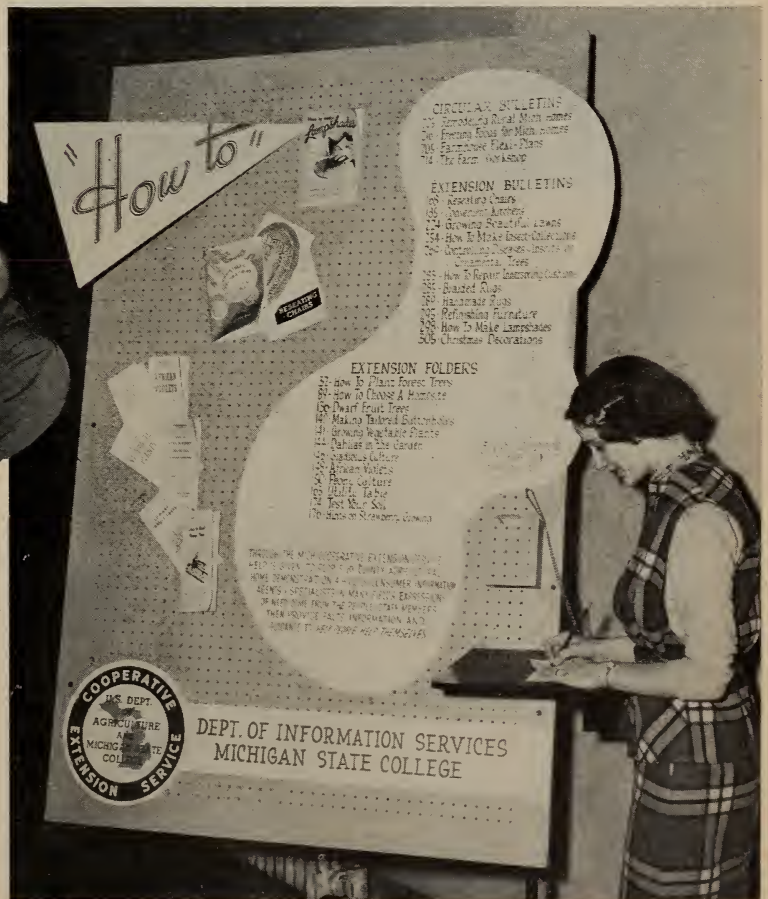 "How to"
Lampshades
RESEATING
CHAIRS
AFRICAN
VIOLETS
CIRCULAR BULLETINS
Remodeling Rural Mich Homes
Freezing Foods for Mich. Homes
Farmhouse Flexi-Plans
The Farm Workshop
EXTENSION BULLETINS
Reseating Chairs
Convenient Kitchens
Growing Beautiful Lawns
254- How To Make Insect Collections
Controlling Diseases - Insects on
Ornamental Trees
How To Repair Innerspring Cushions
Braided Rugs
Handmade Rugs
295- Refinishing Furniture
298- How To Make Lampshades
305- Christmas Decorations
EXTENSION FOLDERS
How To Plant Forest Trees
89- How To Choose A Homesite
136- Dwarf Fruit Trees
Making Tailored Buttonholes
Growing Vegetable Plants
Dahlias in the Garden
Gladiolus Culture
African Violets
Peony Culture
Utility Table
Test Your Soil
Hints on Strawberry Growing
THROUGH THE MICH COOPERATIVE EXTENSION SERVICE
HELP IS GIVEN TO COUNTY AGRICULTURAL
HOME DEMONSTRATION CONSUMER INFORMATION
AGENTS SPECIALISTS IN MANY FIELDS EXPRESSIONS
OF NEED COME FROM THE PEOPLE STAFF MEMBERS
THEN PROVIDE FACTS INFORMATION AND
GUIDANCE TO HELP PEOPLE HELP THEMSELVES
COOPERATIVE
U.S. DEPT.
AGRICULTURE
AND
MICHIGAN STATE
COLLEGE
EXTENSION SERVICE
DEPT. OF INFORMATION SERVICES
MICHIGAN STATE COLLEGE